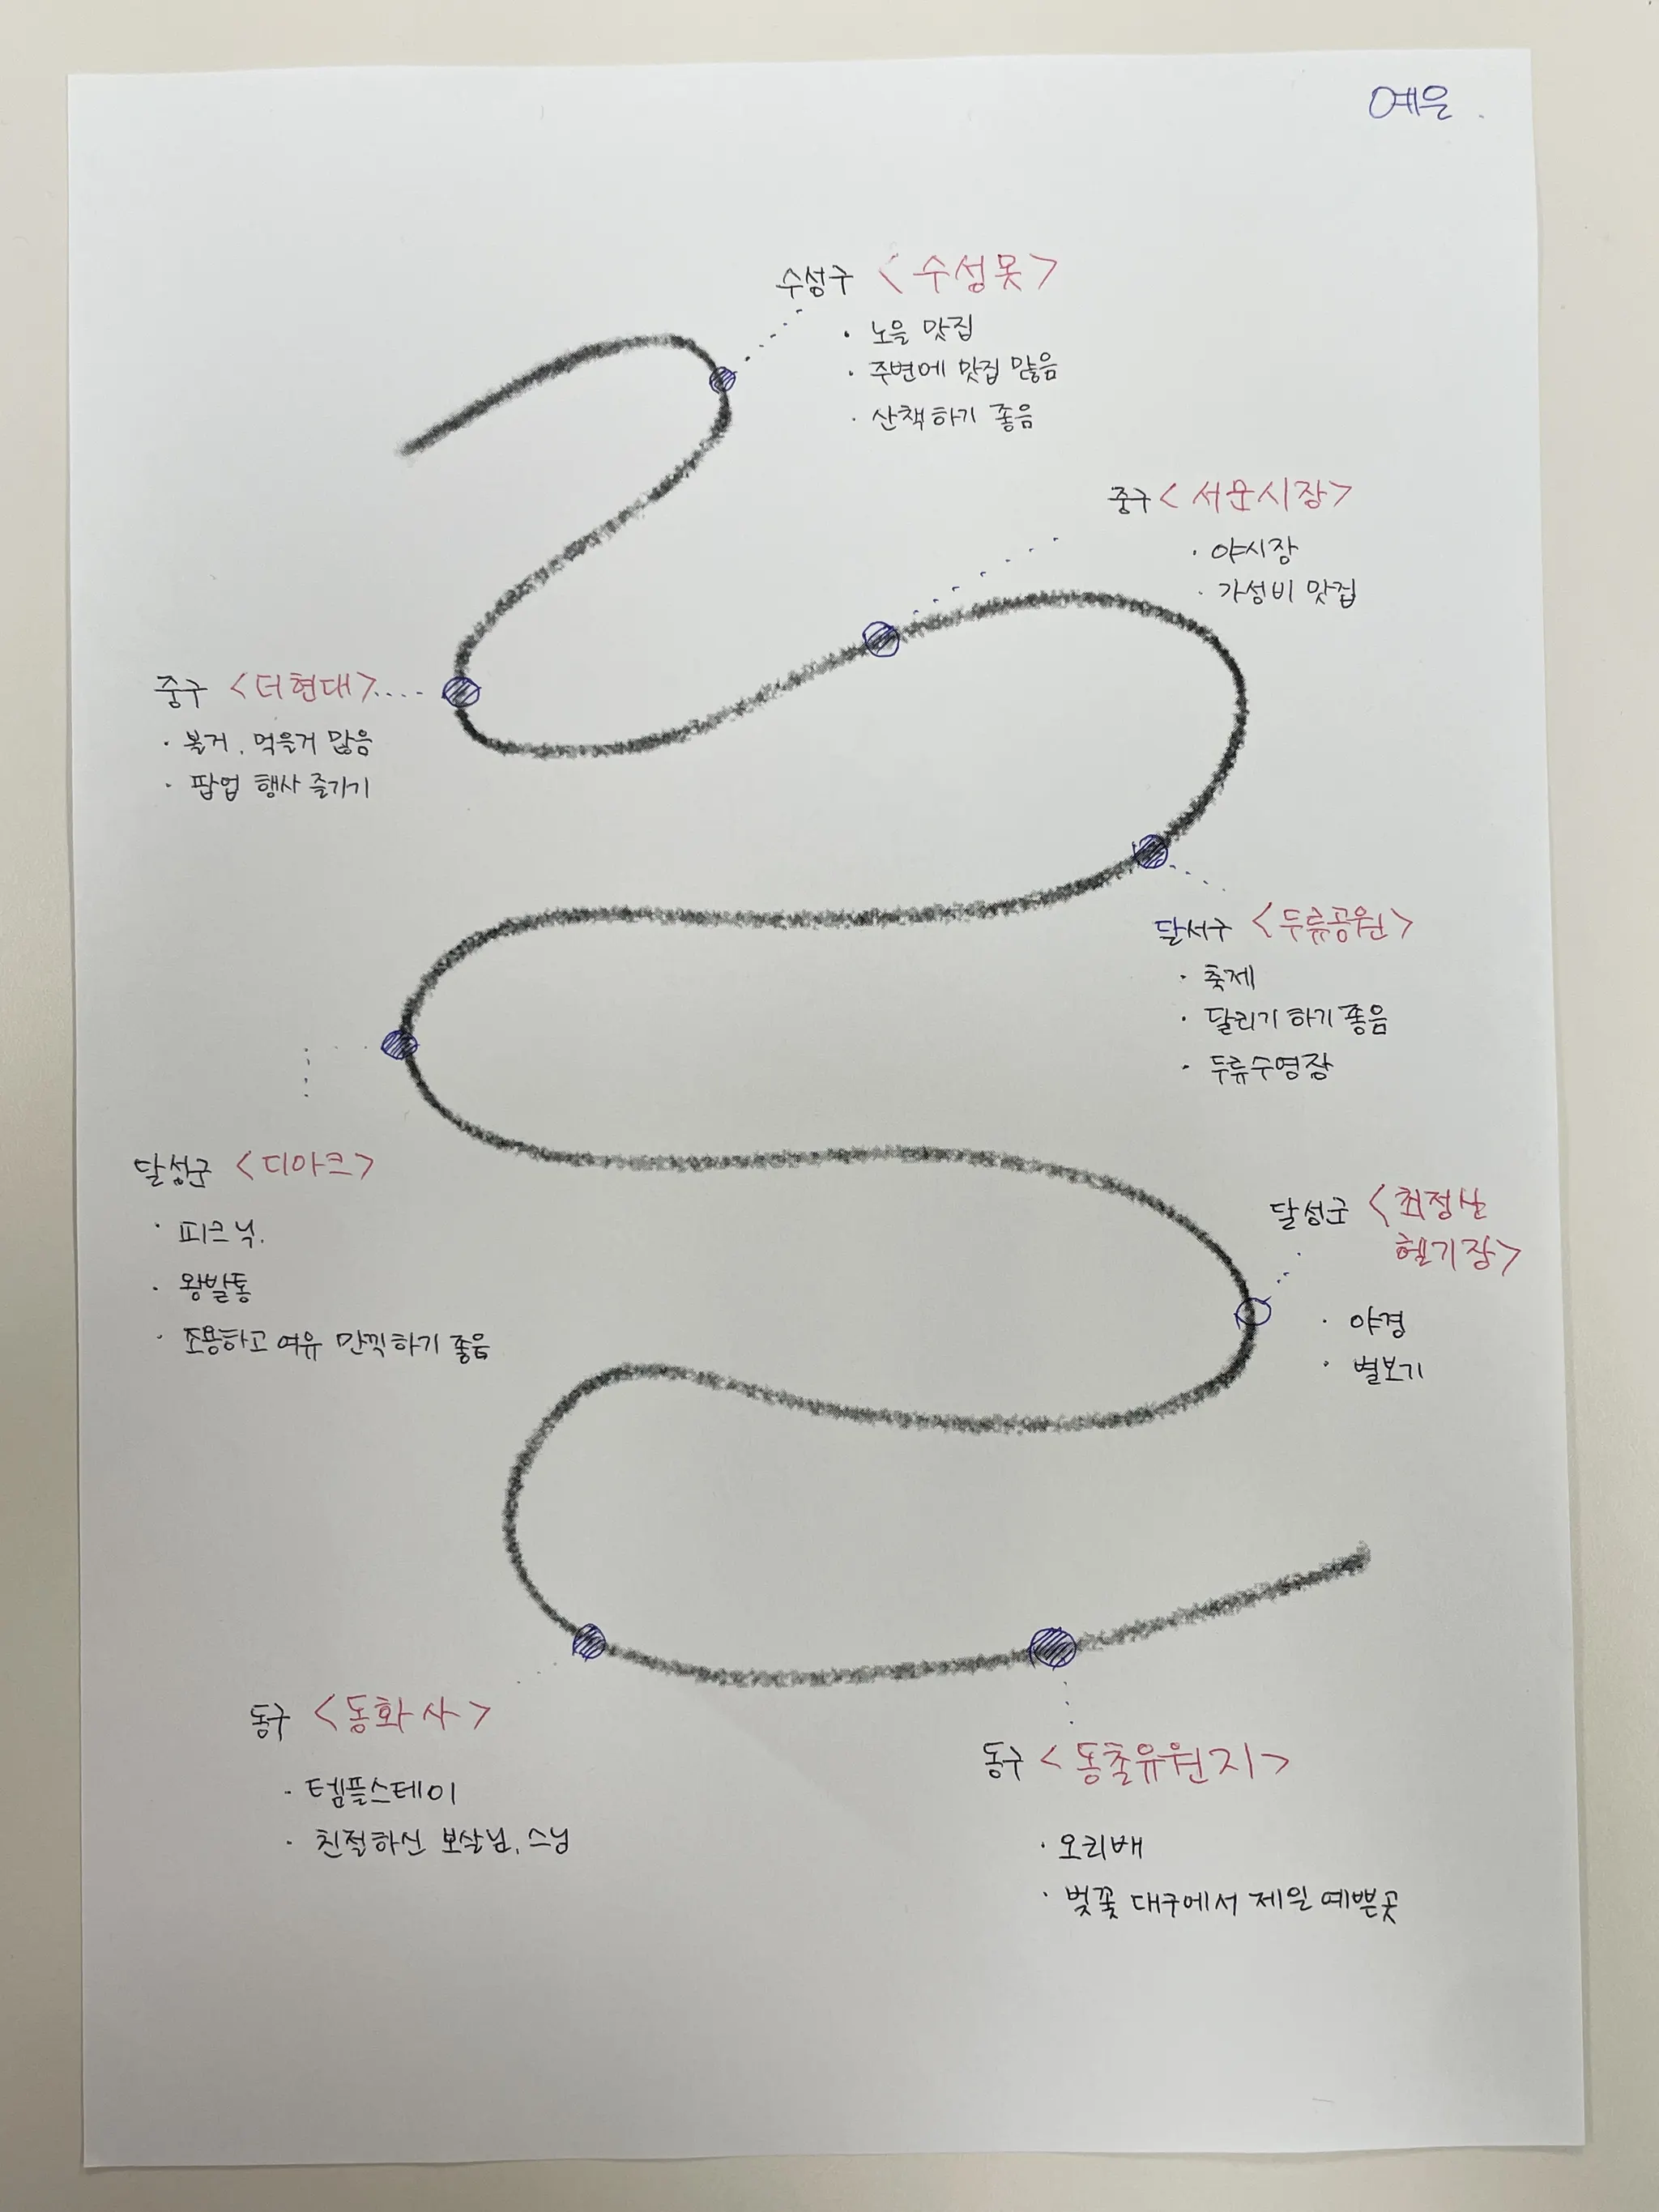 예은
수성구 <수성못>
· 노을 맛집
· 주변에 맛집 많음
· 산책하기 좋음
중구 <서문시장>
· 야시장
· 가성비 맛집
중구 <더현대>
· 볼거, 먹을거 많음
· 팝업 행사 즐기기
달서구 <두류공원>
· 축제
· 달리기 하기 좋음
· 두류수영장
달성군 <디아크>
· 피크닉.
· 왕발통
· 조용하고 여유 만끽하기 좋음
달성군 <최정산
헬기장>
· 야경
· 별보기
동구 <동화사>
· 템플스테이
· 친절하신 보살님, 스님
동구 <동촌유원지>
· 오리배
· 벚꽃 대구에서 제일 예쁜곳